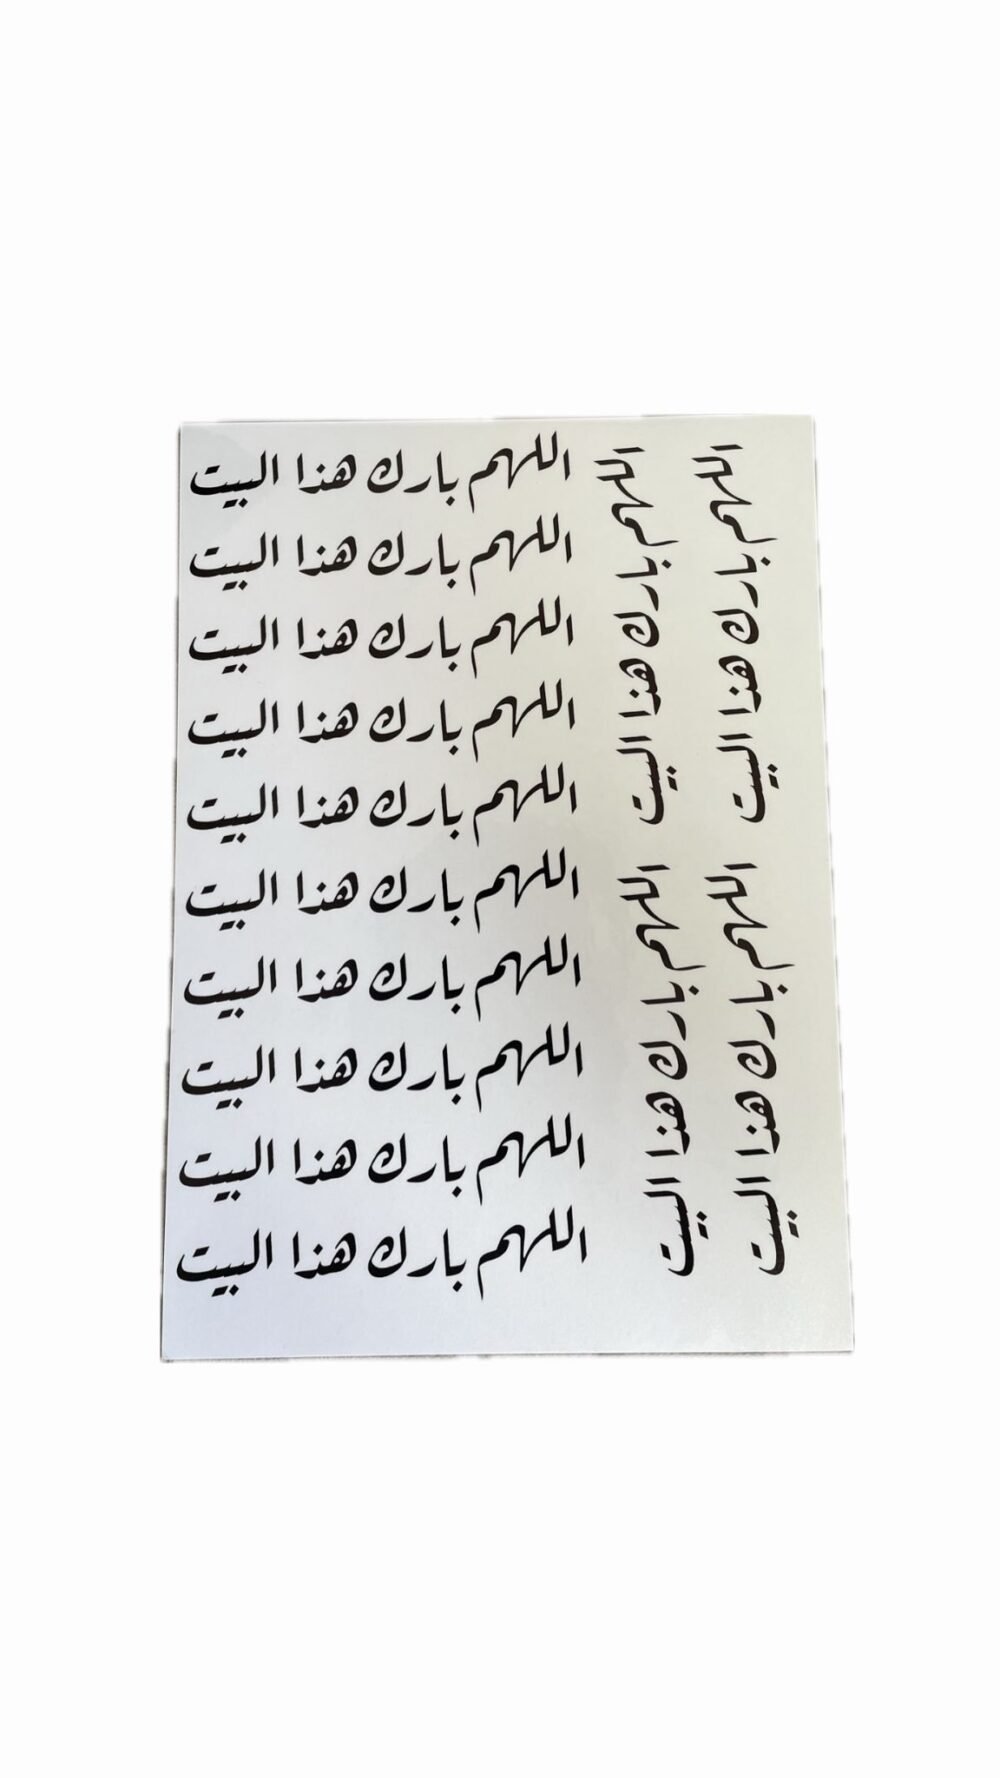 اللهم بارك هذا البيت
اللهم بارك هذا البيت
اللهم بارك هذا البيت
اللهم بارك هذا البيت
اللهم بارك هذا البيت
اللهم بارك هذا البيت
اللهم بارك هذا البيت
اللهم بارك هذا البيت
اللهم بارك هذا البيت
اللهم بارك هذا البيت
اللهم بارك هذا البيت
اللهم بارك هذا البيت
اللهم بارك هذا البيت
اللهم بارك هذا البيت